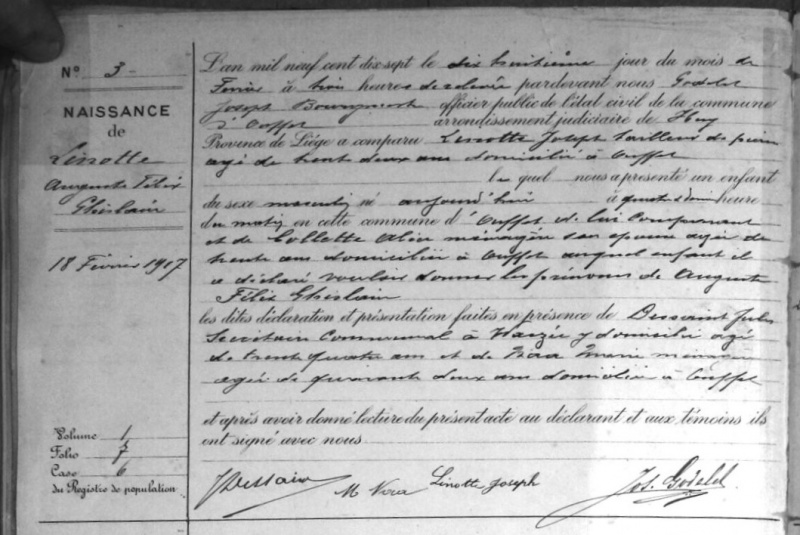 N° 3
NAISSANCE
de
Linotte
Auguste Félix
Ghislain
18 Février 1917
Volume 1
Folio 7
Case 6
du Registre de population
L'an mil neuf cent dix sept le dix huitième jour du mois de
Février à trois heures de relevée pardevant nous Godelet
Joseph Bourgmestre officier public de l'état civil de la commune
d'Ouffet arrondissement judiciaire de Huy
Province de Liége a comparu Linotte Joseph tailleur de pierres
agé de trente deux ans domicilié à Ouffet
le quel nous a présenté un enfant
du sexe masculin né aujourd'hui à quatre heure
du matin en cette commune d'Ouffet de lui Comparant
et de Collette Alix ménagère son épouse agée de
trente ans domiciliée à Ouffet auquel enfant il
a déclaré vouloir donner les prénoms de Auguste
Félix Ghislain
les dites déclaration et présentation faites en présence de Dessaint Jules
Secrétaire Communal à Warzée y domicilié agé
de trente quatre ans et de Marie ménagère
agée de quarante deux ans domiciliée à Ouffet
et après avoir donné lecture du présent acte au déclarant et aux témoins ils
ont signé avec nous
JDessain M Linotte Joseph Jos. Godelet